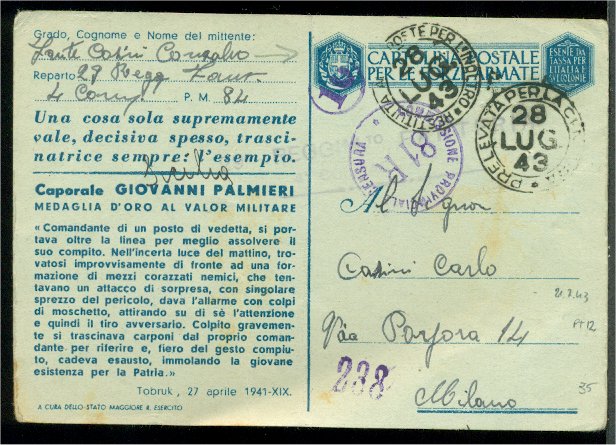 Grado, Cognome e Nome del mittente:
Casini
Reparto 29 Regg. Fant.
4 Comp. P. M. 84
Una cosa sola supremamente
vale, decisiva spesso, trasci-
natrice sempre: l'esempio.
Sicilia
Caporale GIOVANNI PALMIERI
MEDAGLIA D'ORO AL VALOR MILITARE
«Comandante di un posto di vedetta, si por-
tava oltre la linea per meglio assolvere il
suo compito. Nell'incerta luce del mattino, tro-
vatosi improvvisamente di fronte ad una for-
mazione di mezzi corazzati nemici, che ten-
tavano un attacco di sorpresa, con singolare
sprezzo del pericolo, dava l'allarme con colpi
di moschetto, attirando su di sè l'attenzione
e quindi il tiro avversario. Colpito gravemen-
te si trascinava carponi dal proprio coman-
dante per riferire e, fiero del gesto compiu-
to, cadeva esausto, immolando la giovane
esistenza per la Patria.»
Tobruk, 27 aprile 1941-XIX.
A CURA DELLO STATO MAGGIORE R. ESERCITO
CARTOLINA POSTALE
PER LE FORZE ARMATE
ESENTE DA
TASSA PER
L'ITALIA
E SUE COLONIE
16
POSTE PER L'INOLTRO
RESTITUITA
28
LUG
43
PRELEVATA PER LA CENSURA
28
LUG
43
COMMISSIONE PROVINCIALE CENSURA
81R
Al Signor
Casini Carlo
21.7.43
Via Porpora 14
PM12
238
Milano
35